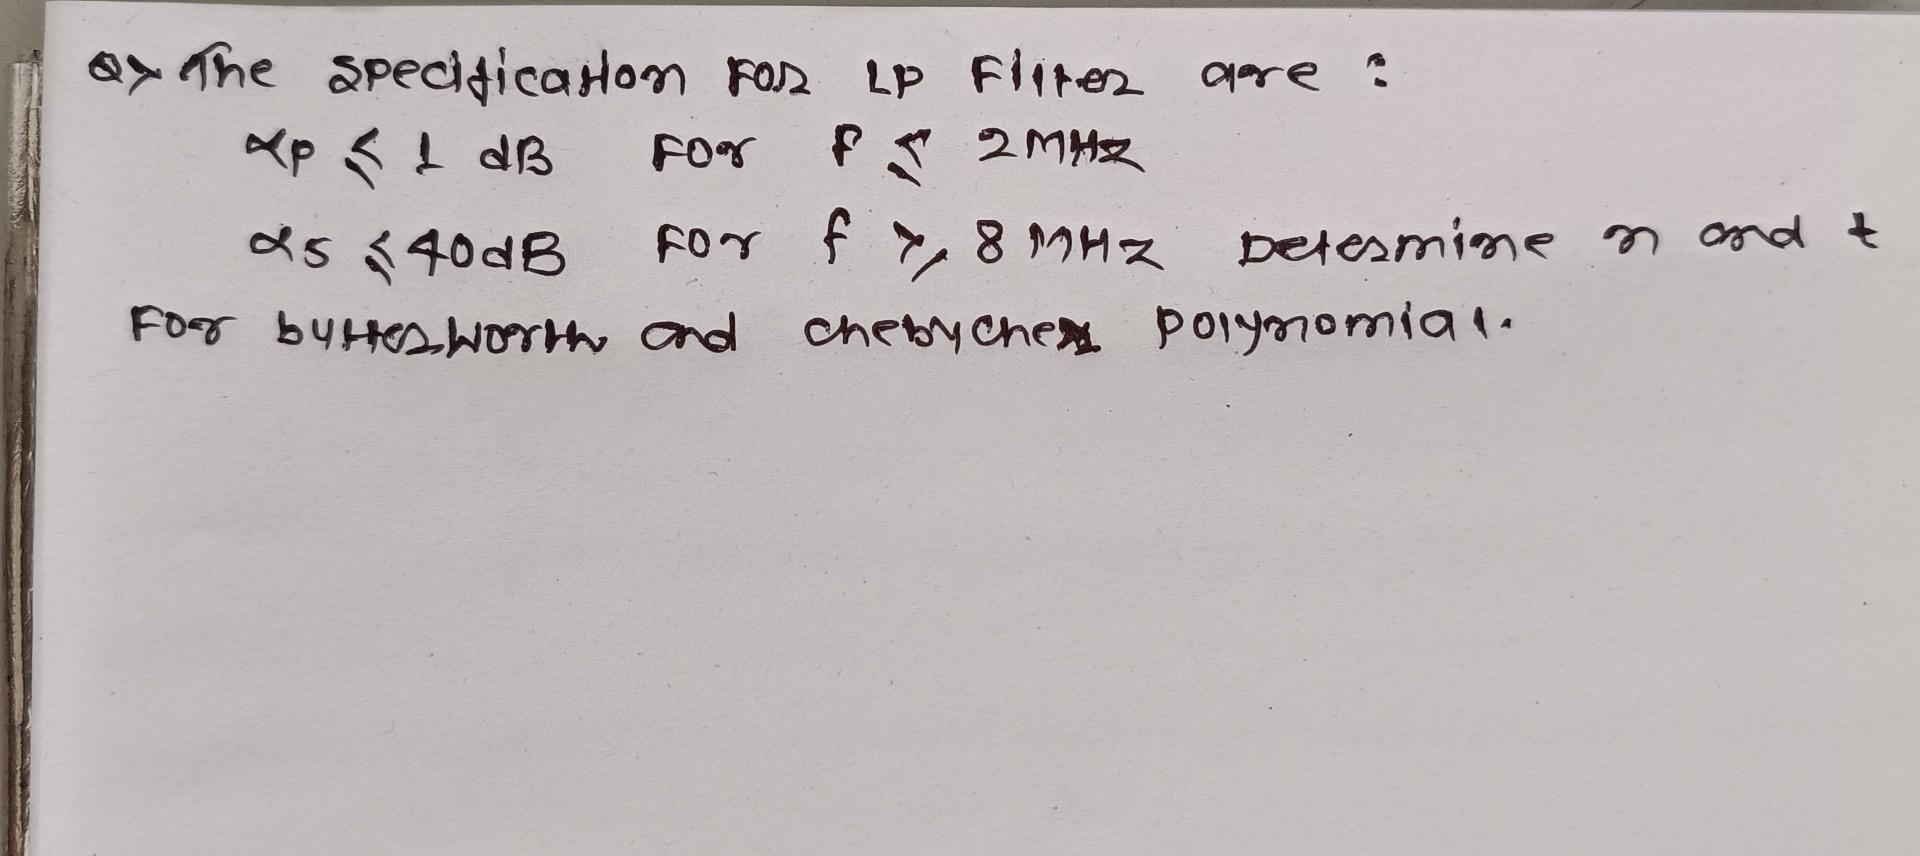 Q> The specification For LP Filter are :
αp ≤ 1 dB For f ≤ 2 MHz
αs ≤ 40dB For f ≥ 8 MHz Determine n and t
For butterworth and chebychev polynomial.